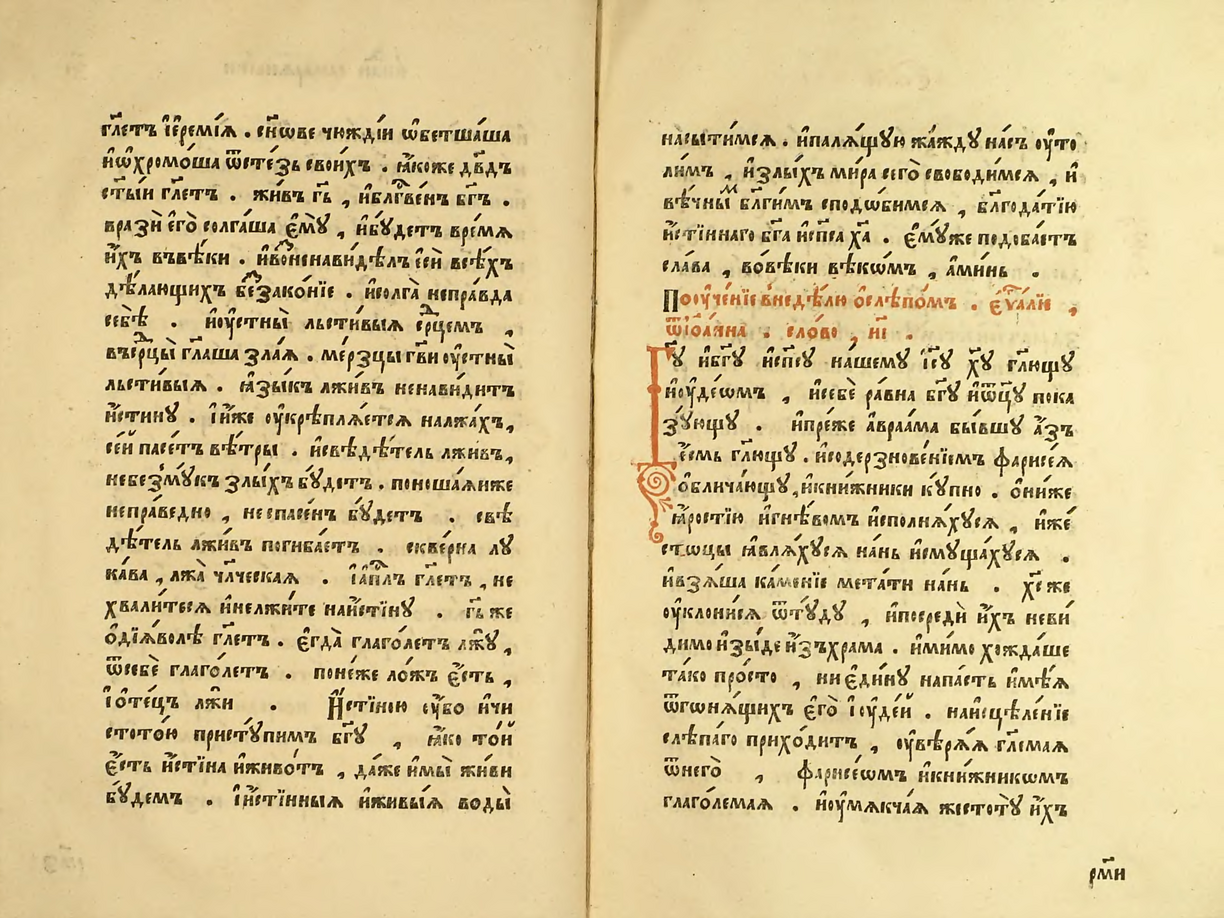 гл҃етъ і҆ереми́ꙗ . сн҃ѡве чюждїи ѡ҆бетшаша
и҆ѡ҆хромо́ша ѿсте́зь свои́хъ . ꙗ҆коже дв҃дъ
ст҃ы́и гл҃етъ . жи́въ гь҃ , и҆блгⷭ҇ве́нъ бг҃ъ .
врази̑ е҆го̀ солга́ша є҆мꙋ̀ , и҆бꙋ́детъ вре́мѧ
и҆́хъ въвѣ́ки . и҆во́ненави́дѣлъ е҆сѝ всѣ́хъ
дѣ́лающихъ беꙁако́нїе . и҆солга̀ непра́вда
себѣ̀ . и҆ᲂу҆стны̀ льсти́выѧ срⷣцемъ ,
въсрⷣцы̀ гл҃аша ꙁла́ѧ . ме́рꙁцы гв҃и ᲂу҆стны̀
льсти́выѧ . ꙗ҆ꙁы́къ лжи́въ ненави́дитъ
и҆́стинꙋ . і҆и҆́же ᲂу҆крѣплѧ́етсѧ налжа́хъ,
се́й пасе́тъ вѣ́тры . и҆свѣдѣ́тель лжи́въ,
небеꙁмꙋ́къ ꙁлы́хъ бꙋ́детъ . поноша́ѧиже
непра́ведно , неспасе́нъ бꙋ́детъ . свѣ
дѣ́тель лжи́въ погиба́етъ . скве́рна лꙋ
ка́ва , лжа̀ чл҃ческаѧ . і҆а҆пⷭ҇лъ гл҃етъ , не
хвали́тесѧ и҆нелжи́те наи҆́стинꙋ . гь҃ же
ѻ҆дїѧ́волѣ гл҃етъ . є҆гда̀ глаго́летъ лжꙋ̀ ,
ѿсебѐ глаго́летъ . поне́же ло́жъ є҆́сть ,
і҆ѻ҆те́цъ лжи . И҆́стїною ᲂу҆́бо и҆чи
стото́ю присту́пимъ бг҃ꙋ , ꙗ҆́ко то́й
є҆́сть и҆́стїна и҆живо́тъ , да́же и҆мы̀ жи́ви
бꙋ́демъ . і҆и҆́стїнныѧ и҆живы́ѧ воды̀
насы́тимсѧ . и҆палѧ́щꙋю жа́ждꙋ на́съ ᲂу҆то
ли́мъ , и҆ꙁлы́хъ ми́ра сего̀ свободи́мсѧ , и҆
вѣ́чныⷨ бл҃ги́мъ сподо́бимсѧ , бл҃года́тїю
и҆́стїннаго бг҃а и҆сп҃са ха҃ . є҆мꙋ́же подоба́етъ
сла́ва , во́вѣки вѣкѡ́мъ , а҆ми́нь .
Поᲂу҆че́нїе внедѣ́лю ѻ҆слѣпо́мъ . є҆ѵⷢ҇а́лїе ,
ѿі҆ѻа́нна . сло́во , ні .
Гꙋ҃ и҆бг҃ꙋ и҆сп҃сꙋ на́шемꙋ і҆сꙋ҃ хꙋ҃ гл҃ющꙋ
и҆ю҆дѣ́ѡмъ , и҆себѐ ра́вна бг҃ꙋ и҆ѿц҃ꙋ̀ пока
ꙁꙋ́ющꙋ . и҆пре́же а҆враа́ма бы́вшꙋ а҆́ꙁъ
є҆́смь гл҃ющꙋ . и҆содерꙁнове́нїемъ фарисе́ѧ
ѻ҆блича́ющꙋ , и҆кни́жники кꙋ́пно . ѻ҆ни́же
ꙗ҆́ростїю и҆гнѣ́вомъ и҆спо́лнѧхꙋсѧ , и҆́же
стѡцы ꙗ҆влѧ́хꙋсѧ на́нь и҆мꙋща́хꙋсѧ .
и҆вꙁѧ́ша ка́менїе мета́ти на́нь . хс҃ же
ᲂу҆клони́сѧ ѿтꙋ́дꙋ , и҆посредѝ и҆́хъ неви́
димо и҆ꙁы́де и҆ꙁъхра́ма . и҆ми́мо хожда́ше
та́ко про́сто , ниє҆ди́нꙋ напа́сть и҆мѣ́ѧ
ѿгонѧ́щихъ є҆го̀ і҆ꙋде́й . наи҆сцѣле́нїе
слѣпа́го прихо́дитъ , ᲂу҆вѣрѧ́ѧ гл҃емаѧ
ѿнего̀ , фарисе́ѡмъ и҆кни́жникѡмъ
глаго́лемаѧ . и҆ᲂу҆мѧкча́ѧ жестотꙋ̀ и҆́хъ
рм҃и